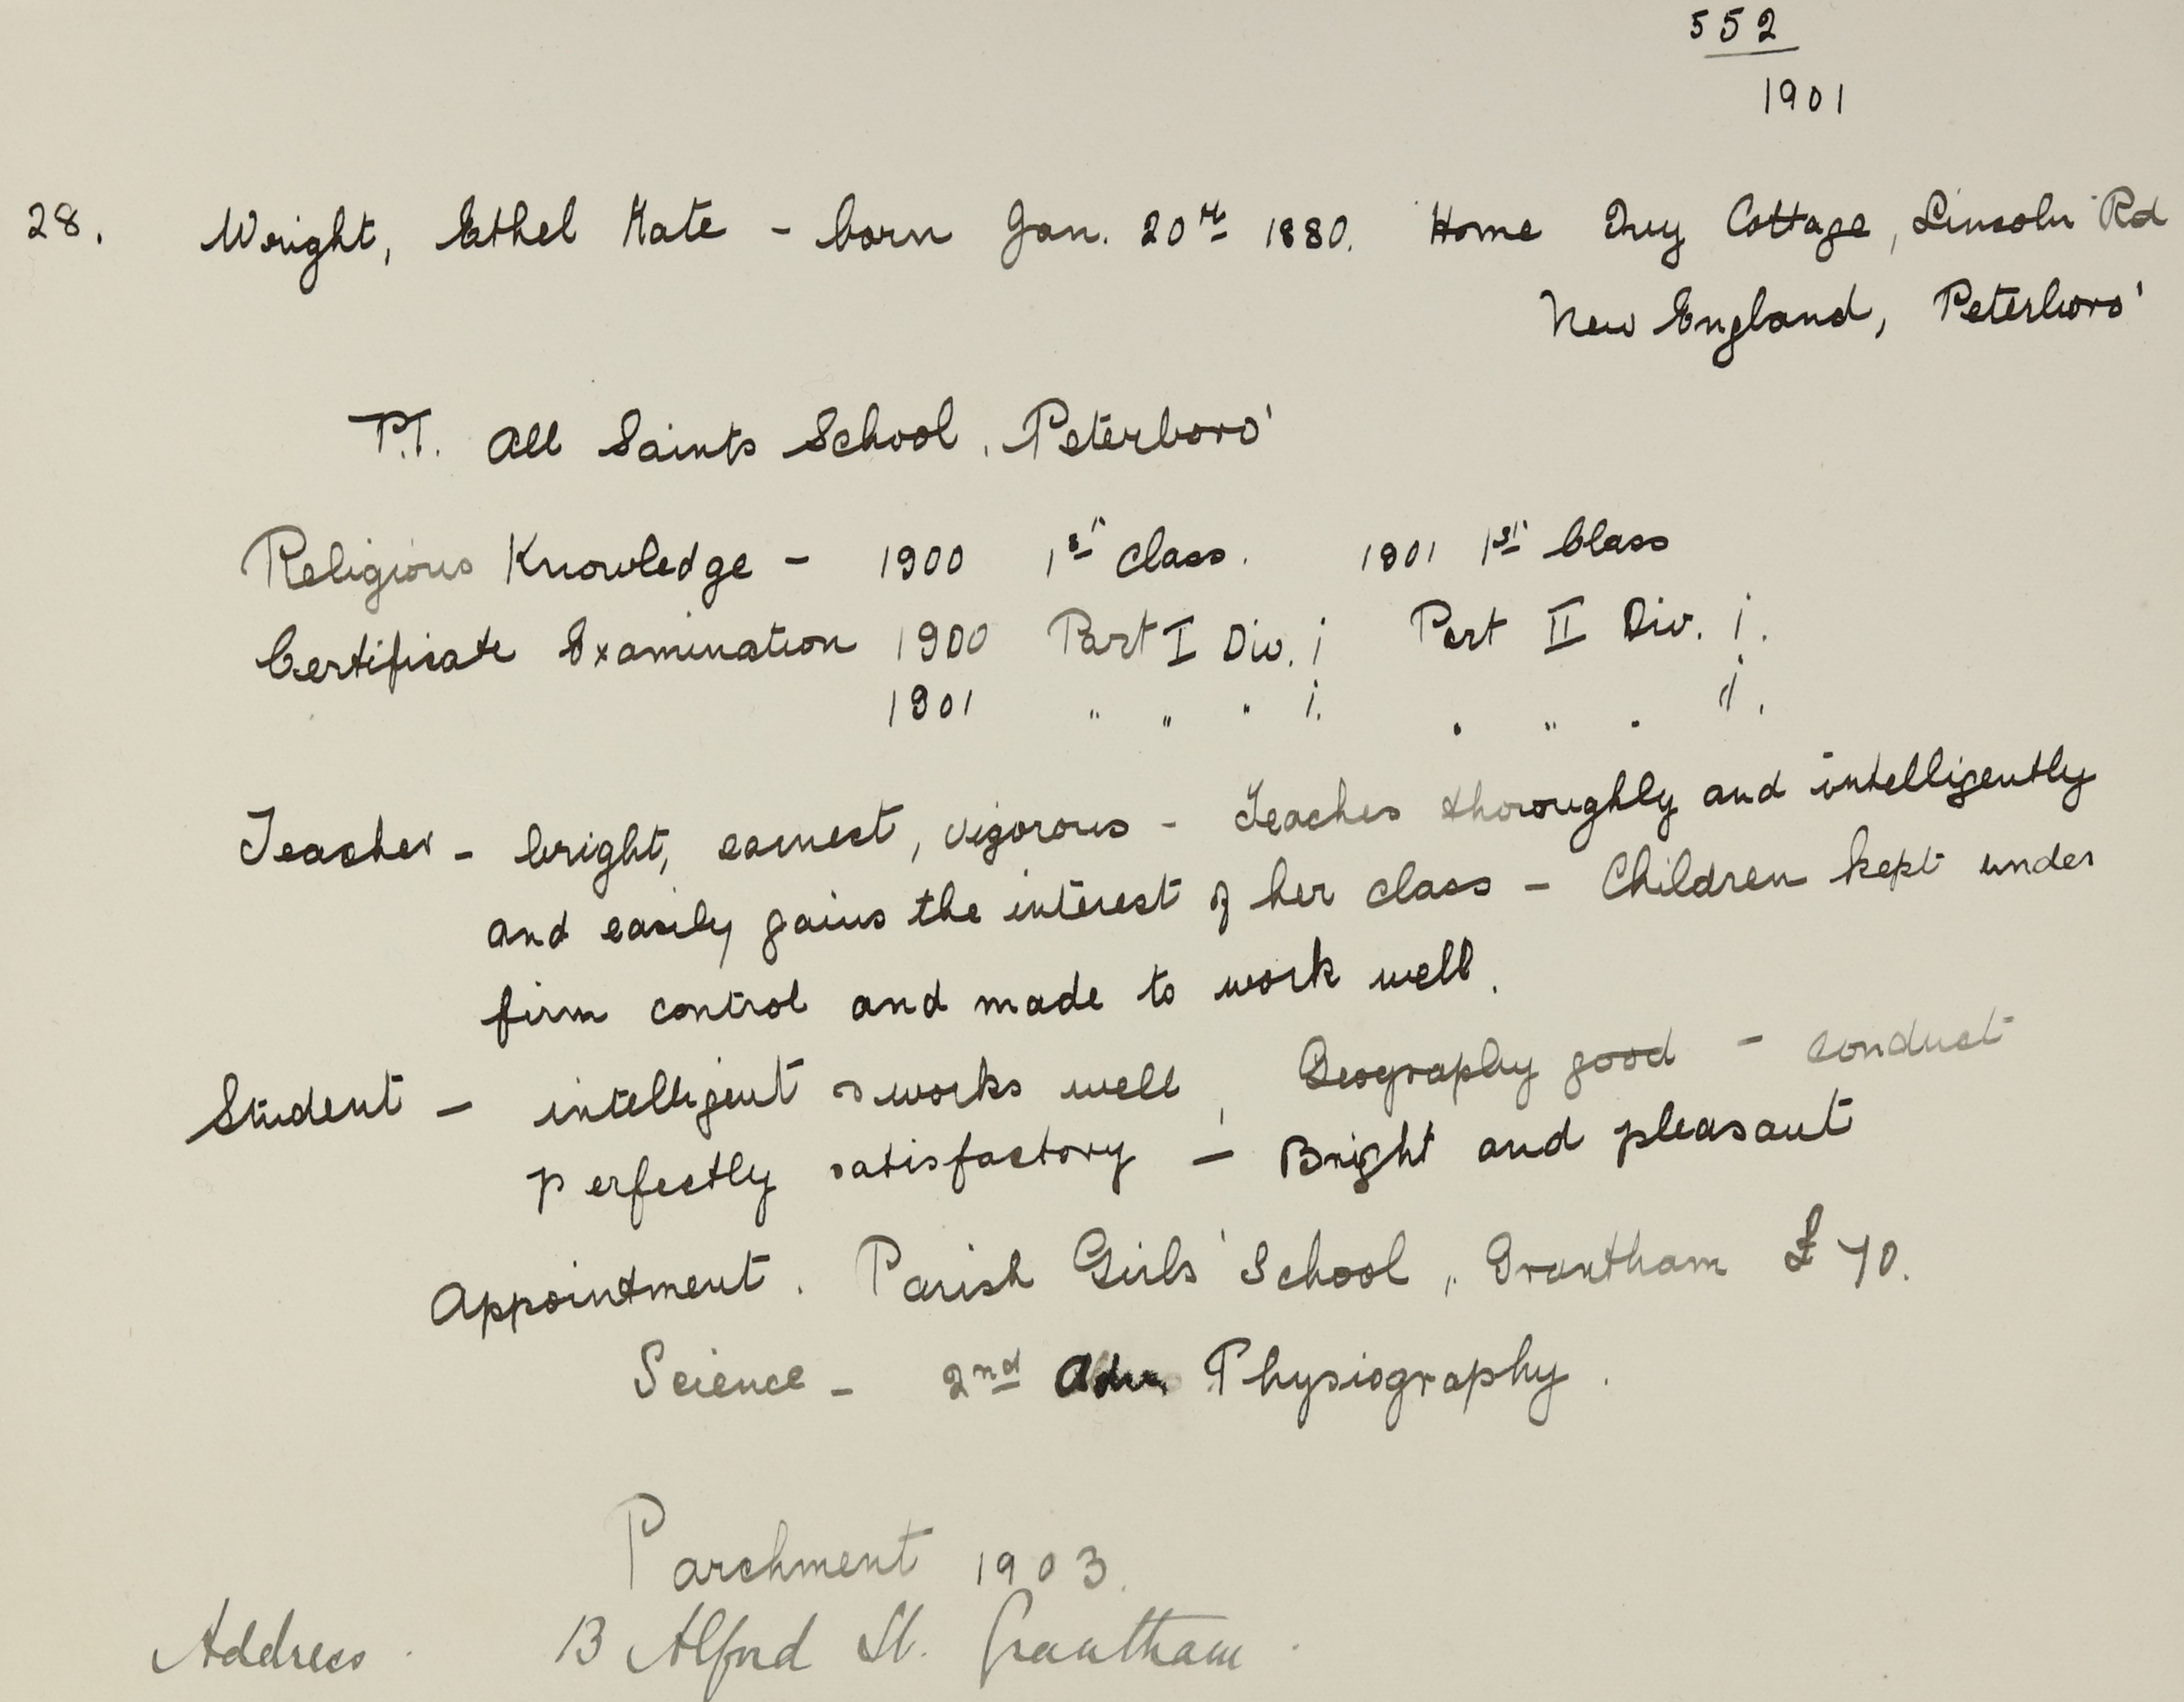 552
1901
28. Wright, Ethel Kate - born Jan. 20th 1880. Home Ivy Cottage, Lincoln Rd
New England, Peterboro'
P.T. All Saints School, Peterboro'
Religious Knowledge - 1900 1st Class. 1901 1st Class
Certificate Examination 1900 Part I Div. i Part II Div. i.
1901 " " " i. " " " i.
Teacher - bright, earnest, vigorous - Teaches thoroughly and intelligently
and easily gains the interest of her class - Children kept under
firm control and made to work well.
Student - intelligent & works well, Geography good - conduct
perfectly satisfactory - Bright and pleasant
Appointment. Parish Girls' School, Grantham £70.
Science - 2nd Adv. Physiography.
Parchment 1903.
Address. 13 Alford St. Grantham.